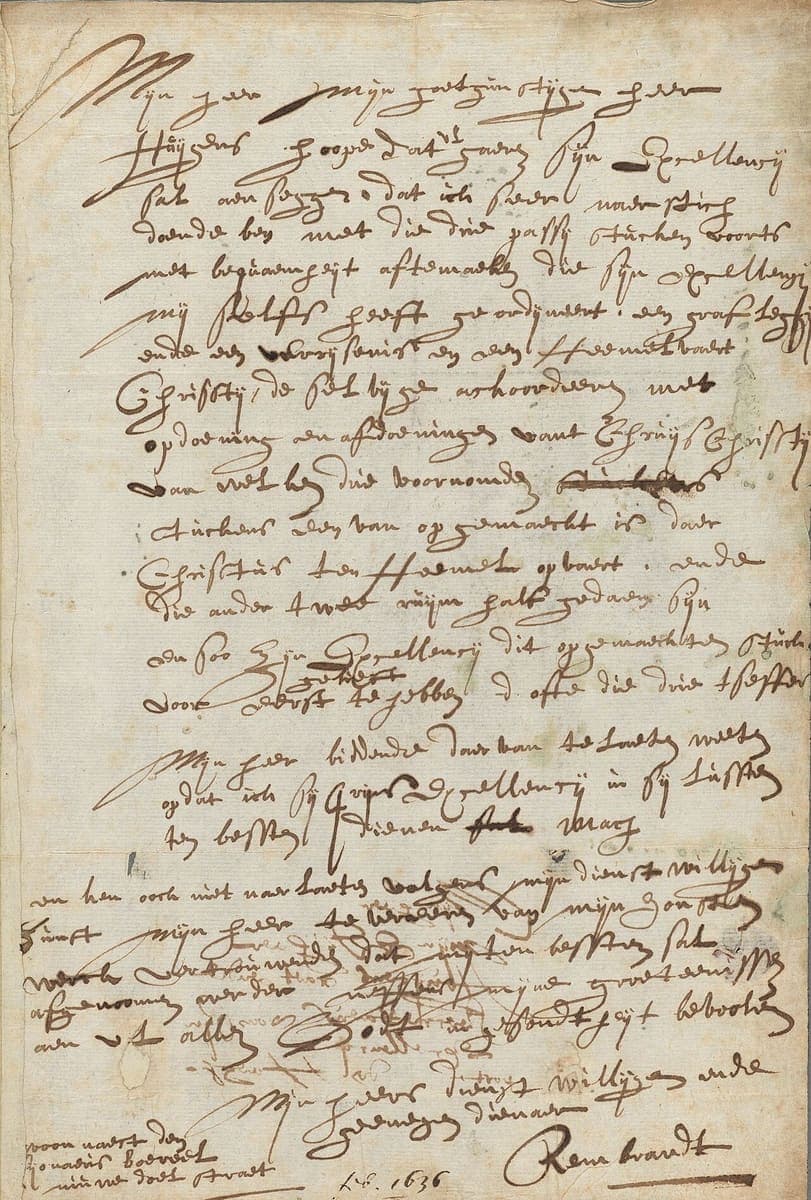 Mijn heer mijn goetgunstijgen heer
Huijgens hoope dat ul gaeren sijn Excellency
sal aenseggen dat ick seer naerstich
doende ben met die drie passij stucken voorts
met bequaemheijt aftemaeken die sijn excellency
mij selfs heeft geordijneert. een graf legging
ende een verrijsenis en een Heemelvaert
Chrissty, de selvijge achoordeeren met
opdoening en afdoeningen vant Chruijs Chrissty
van welken drie voornomden
stuckens een van opgemaeckt is daer
Chrisstus ten Heemel opvaert. ende
die ander twee ruijm half gedaen sijn
en soo Zijn Excellency dit opgemaeckten stuck
gelieft
voor eerst te hebben d ofte die drie tseffens
Mijn heer biddende daer van te laeten weeten
opdat ick sij Prins Excellency in sij lussten
ten bessten dienen mach
en ken ooch niet naer laeten volgens mijn dienstwillijgen
Gunst mijn heer te vereeren van mijn jonsten
werck vertrouwenden dat mij ten bessten sal
afgenoomen werden neffens mijne groeteenissen
aen ul allen Godt in gesondtheijt bevoolen
Mijn heers dienst willijgen ende
geneegen dienaer
Rembrandt
woon naest den
boereel
niuwe doel straet
feb. 1636